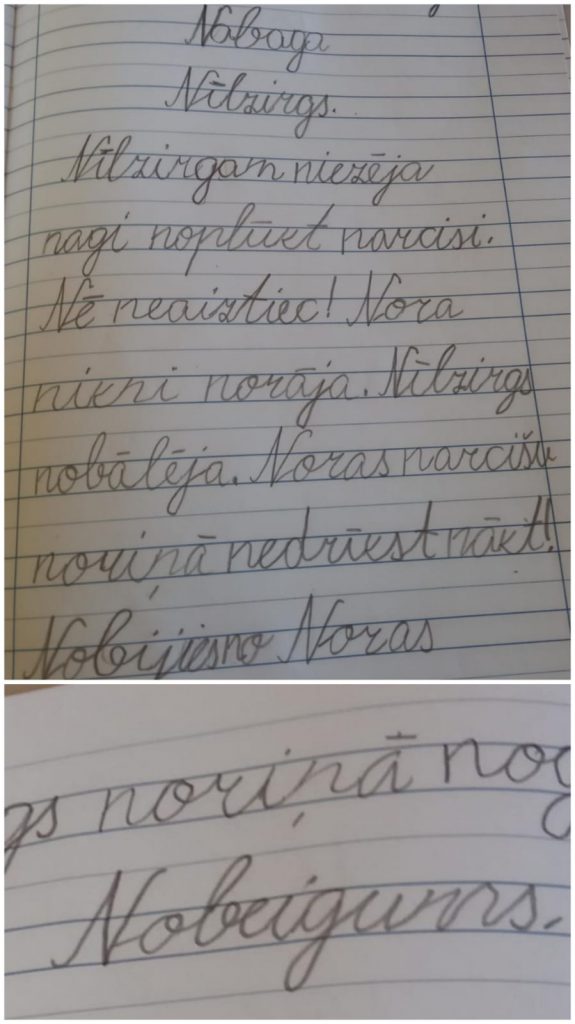 Nabaga
Nīlzirgs.
Nīlzirgam niezēja
nagi noplūkt narcisi.
Nē neaiztiec! Nora
nikni norāja. Nīlzirgs
nobālēja. Noras narcišu
noriņā nedrīkst nākt!
Nobijies no Noras
gs noriņā nog
Nobeigums.